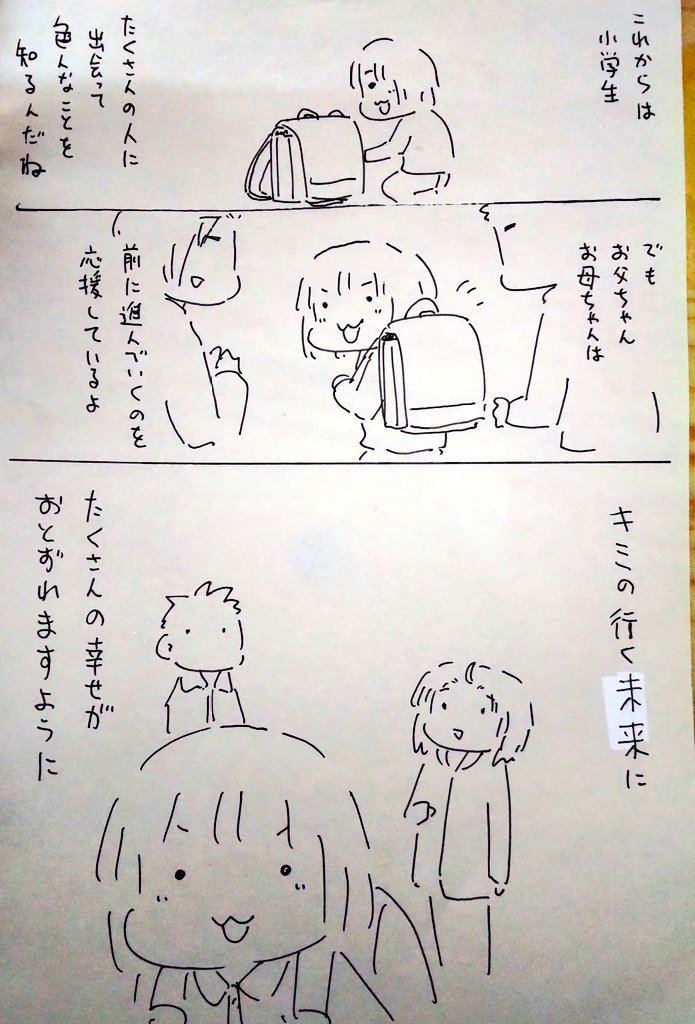 これからは
小学生
たくさんの人に
出会って
色んなことを
知るんだね
でも
お父ちゃん
お母ちゃんは
前に進んでいくのを
応援しているよ
キミの行く未来に
たくさんの幸せが
おとずれますように